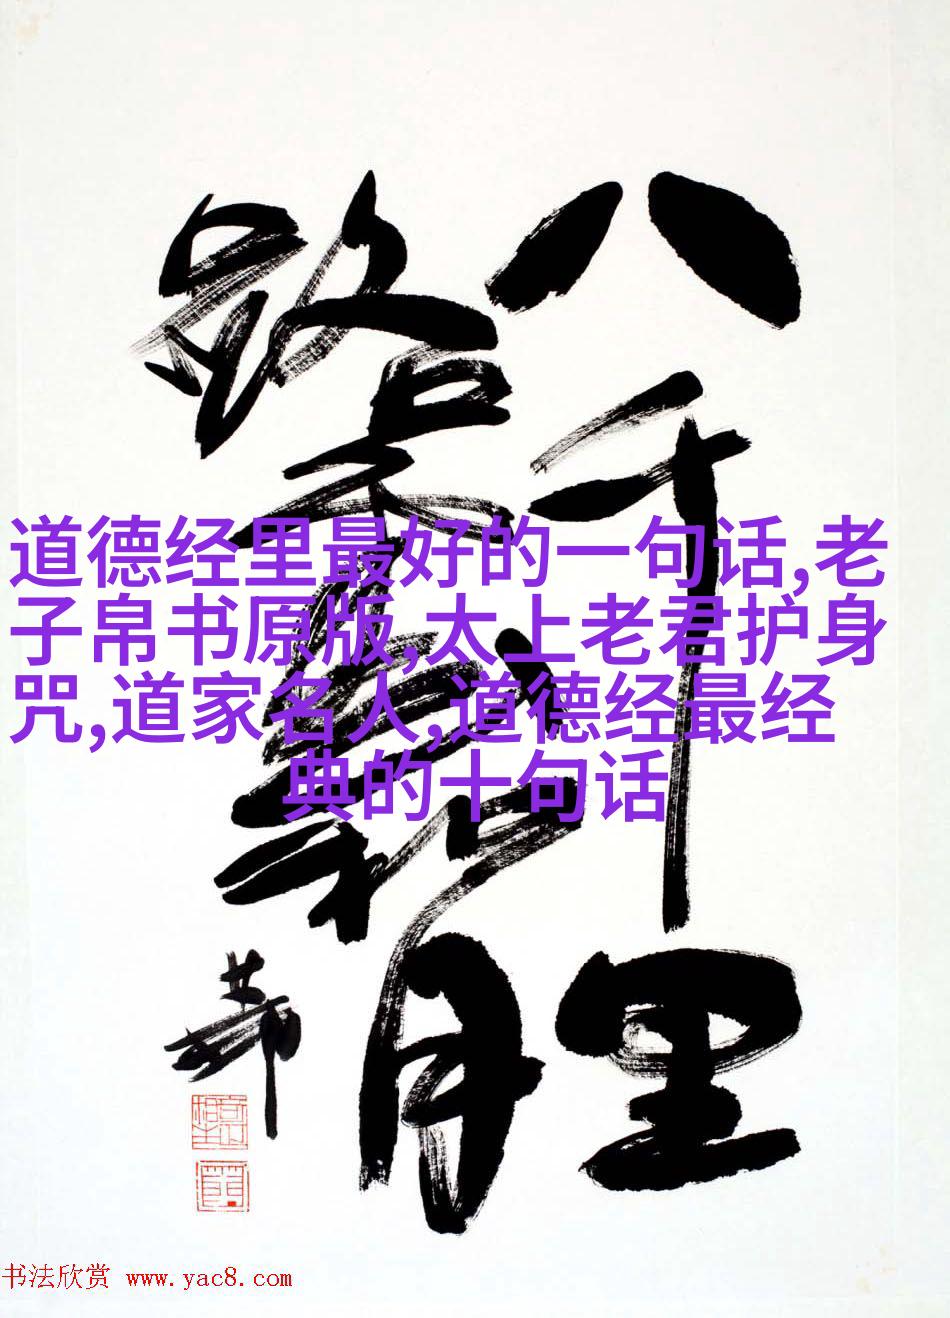 八千里
路云和月
道德经里最好的一句话,老
子帛书原版,太上老君护身
咒,道家名人,道德经最经
典的十句话
书法欣赏 www.yac8.com